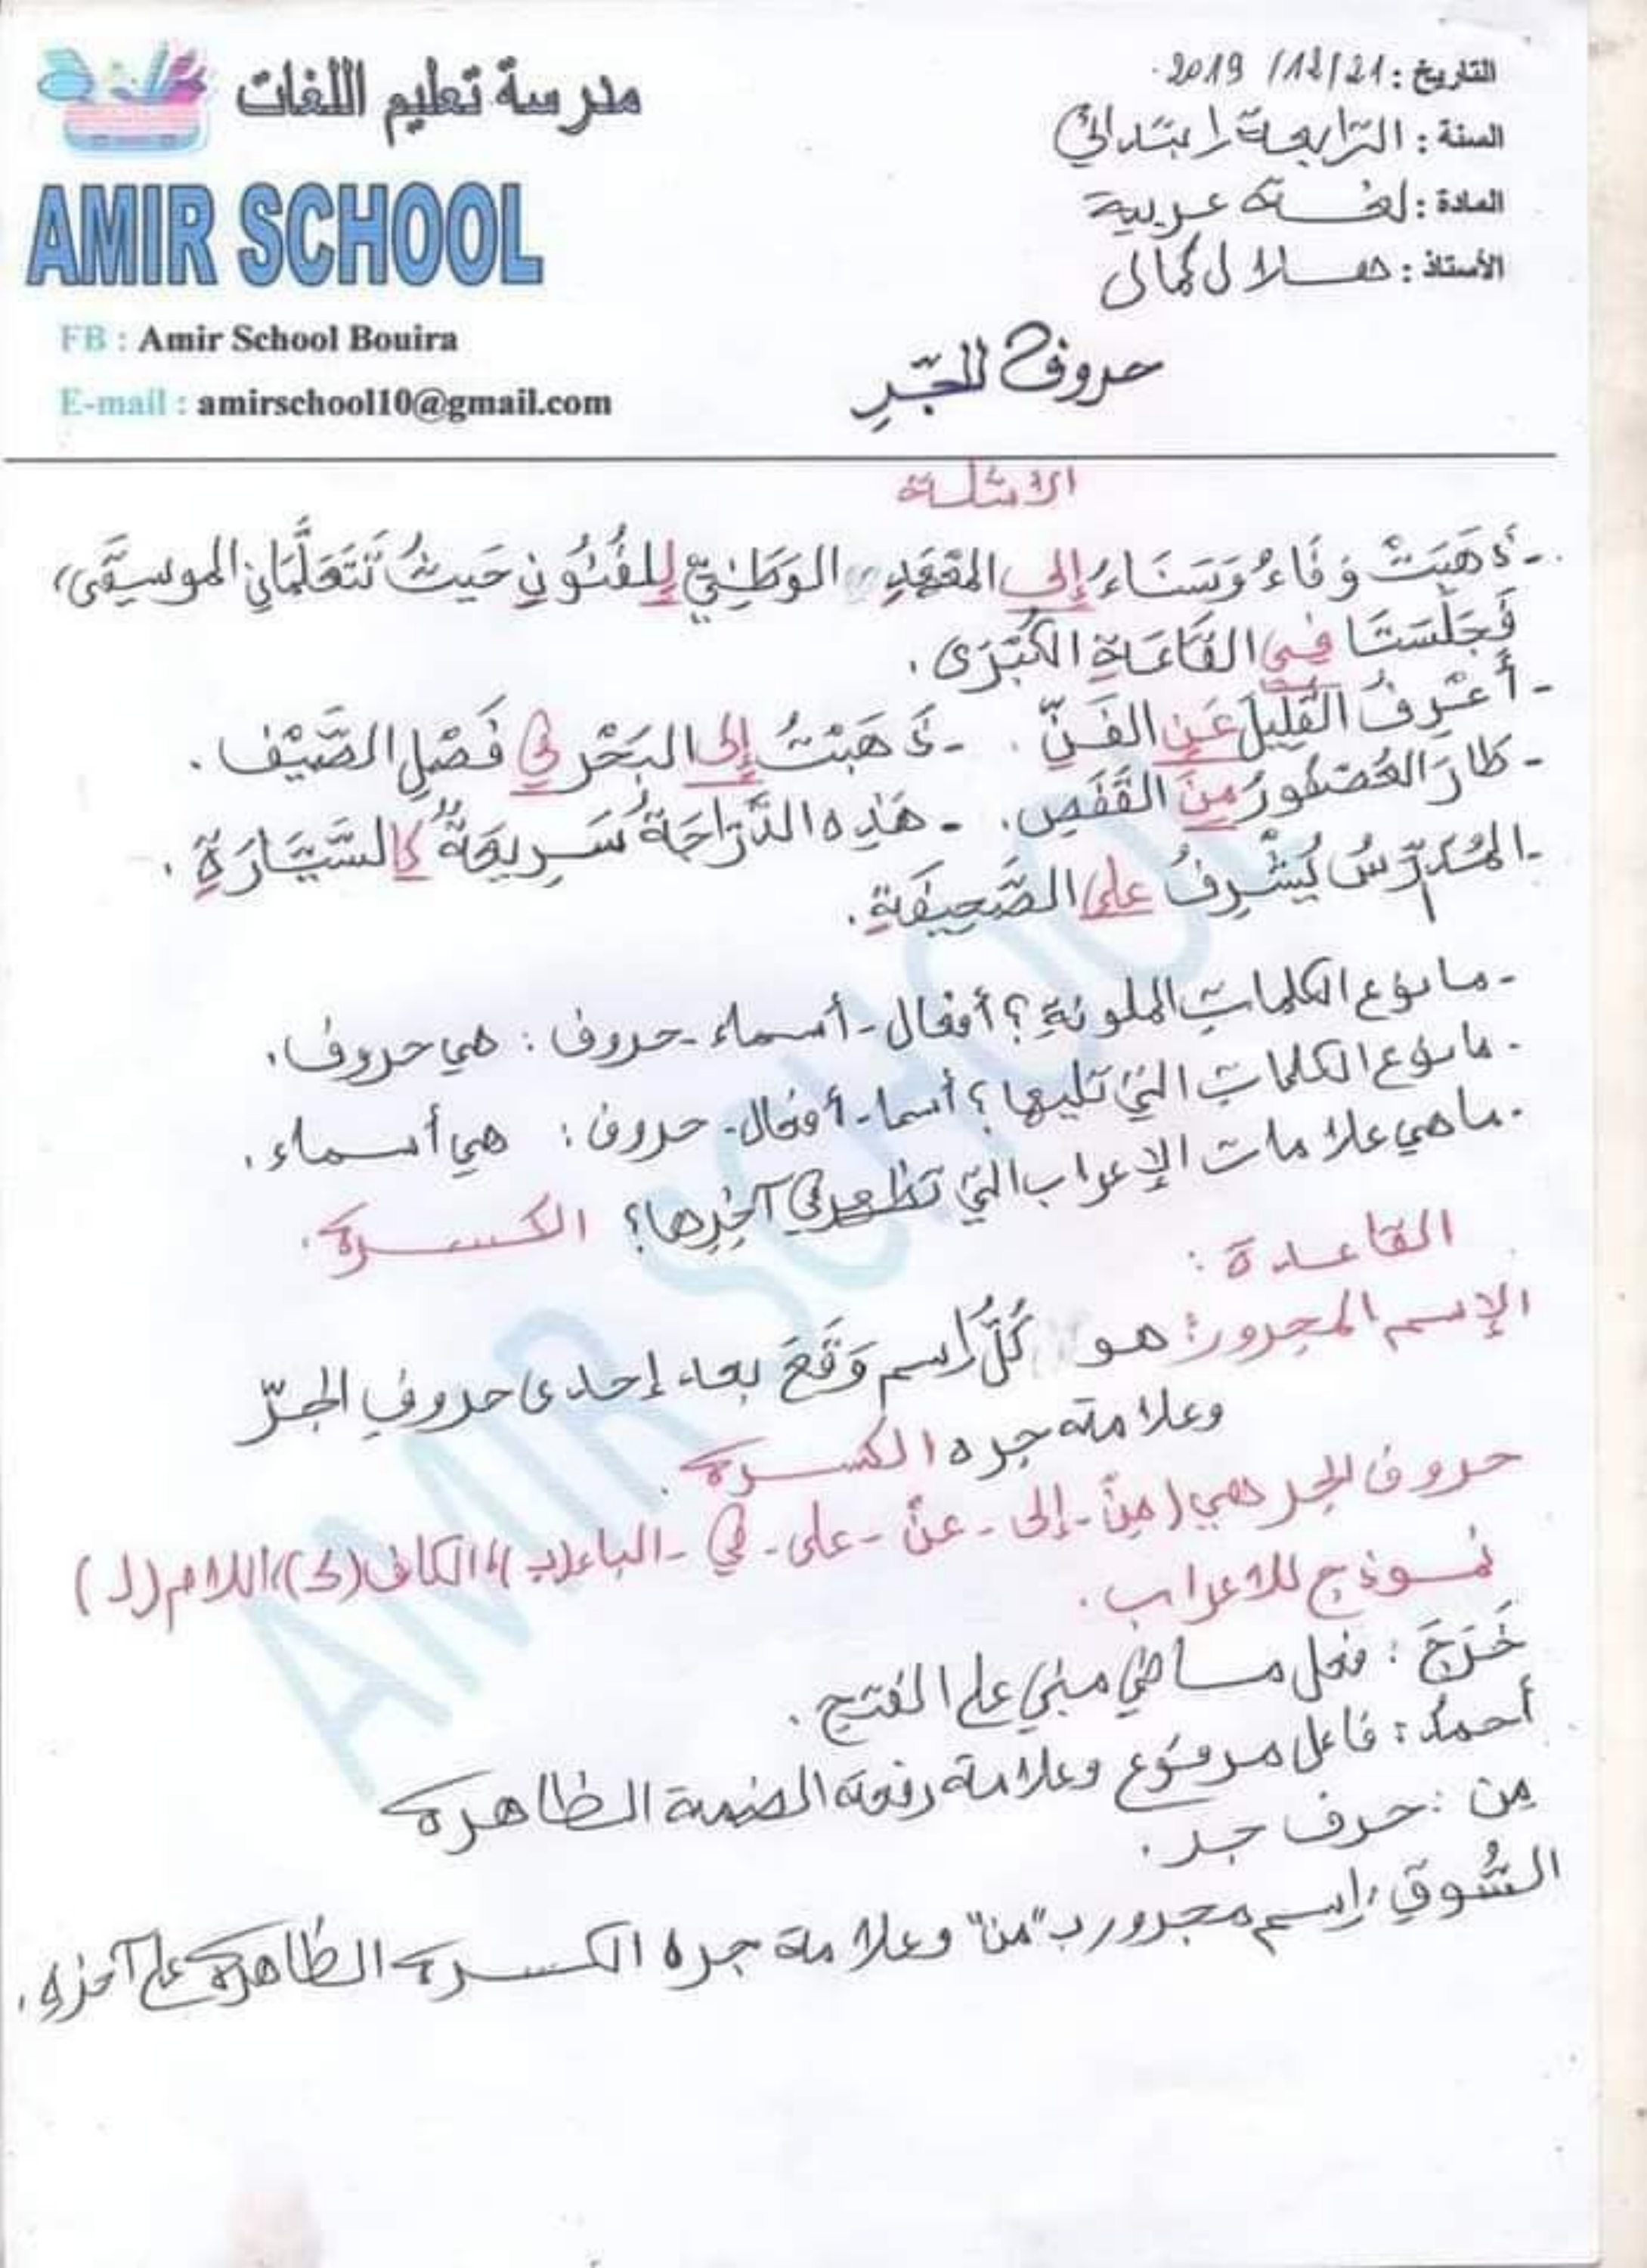 مدرسة تعليم اللغات
AMIR SCHOOL
FB : Amir School Bouira
E-mail : amirschool10@gmail.com
التاريخ : 2019/12/21.
السنة : الرابعة ابتدائي
المادة : لغة عربية
الأستاذ : هلال كمال
حروف الجّرِ
الأمثلة
- ذَهَبَتْ وَفَاءُ وَسَنَاءُ إلى المَعْهَدِ الوَطَنِيِّ لِلفُنُونِ حَيثُ تَتَعَلَّمَانِ الموسيقَى،
فَجَلَسَتَا فِي القَاعَةِ الكُبْرَى.
- أَعْرِفُ القَلِيلَ عَنِ الفَنِّ. - ذَهَبْتُ إلى البَحْرِ في فَصْلِ الصَّيْف.
- طَارَ العُصْفُورُ مِنَ القَفَصِ. - هَذِه الدَّرَّاجَةُ سَرِيعَةٌ كالسَّيَّارَةِ.
- المُدَرِّسُ يُشْرِفُ على الصَّحِيفَةِ.
- ما نوع الكلماتِ الملونةِ؟ أفعال - أسماء - حروف : هي حروف.
- ما نوع الكلماتِ التي تليها؟ أسما - أفعال - حروف : هي أسماء.
- ما هي علامات الإعراب التي تظهر في آخِرِها؟ الكسرة.
القاعدة :
الإسم المجرور: هو كُلُّ إسم وَقَعَ بعد إحدى حروفِ الجرّ
وعلامته جره الكسرة.
حروف الجر هي (مِنْ - إلى - عنْ - على - في - الباء(ب)، الكاف(ك)، اللام(ل)
نموذج للاعراب.
خَرَجَ : فعل ماضي مبني على الفتح.
أحمدُ : فاعل مرفوع وعلامة رفعه الضمة الظاهرة
مِن : حرف جر.
السُّوقِ : إسم مجرور ب"من" وعلامة جره الكسرة الظاهرة على آخره.
AMIR SCHOOL